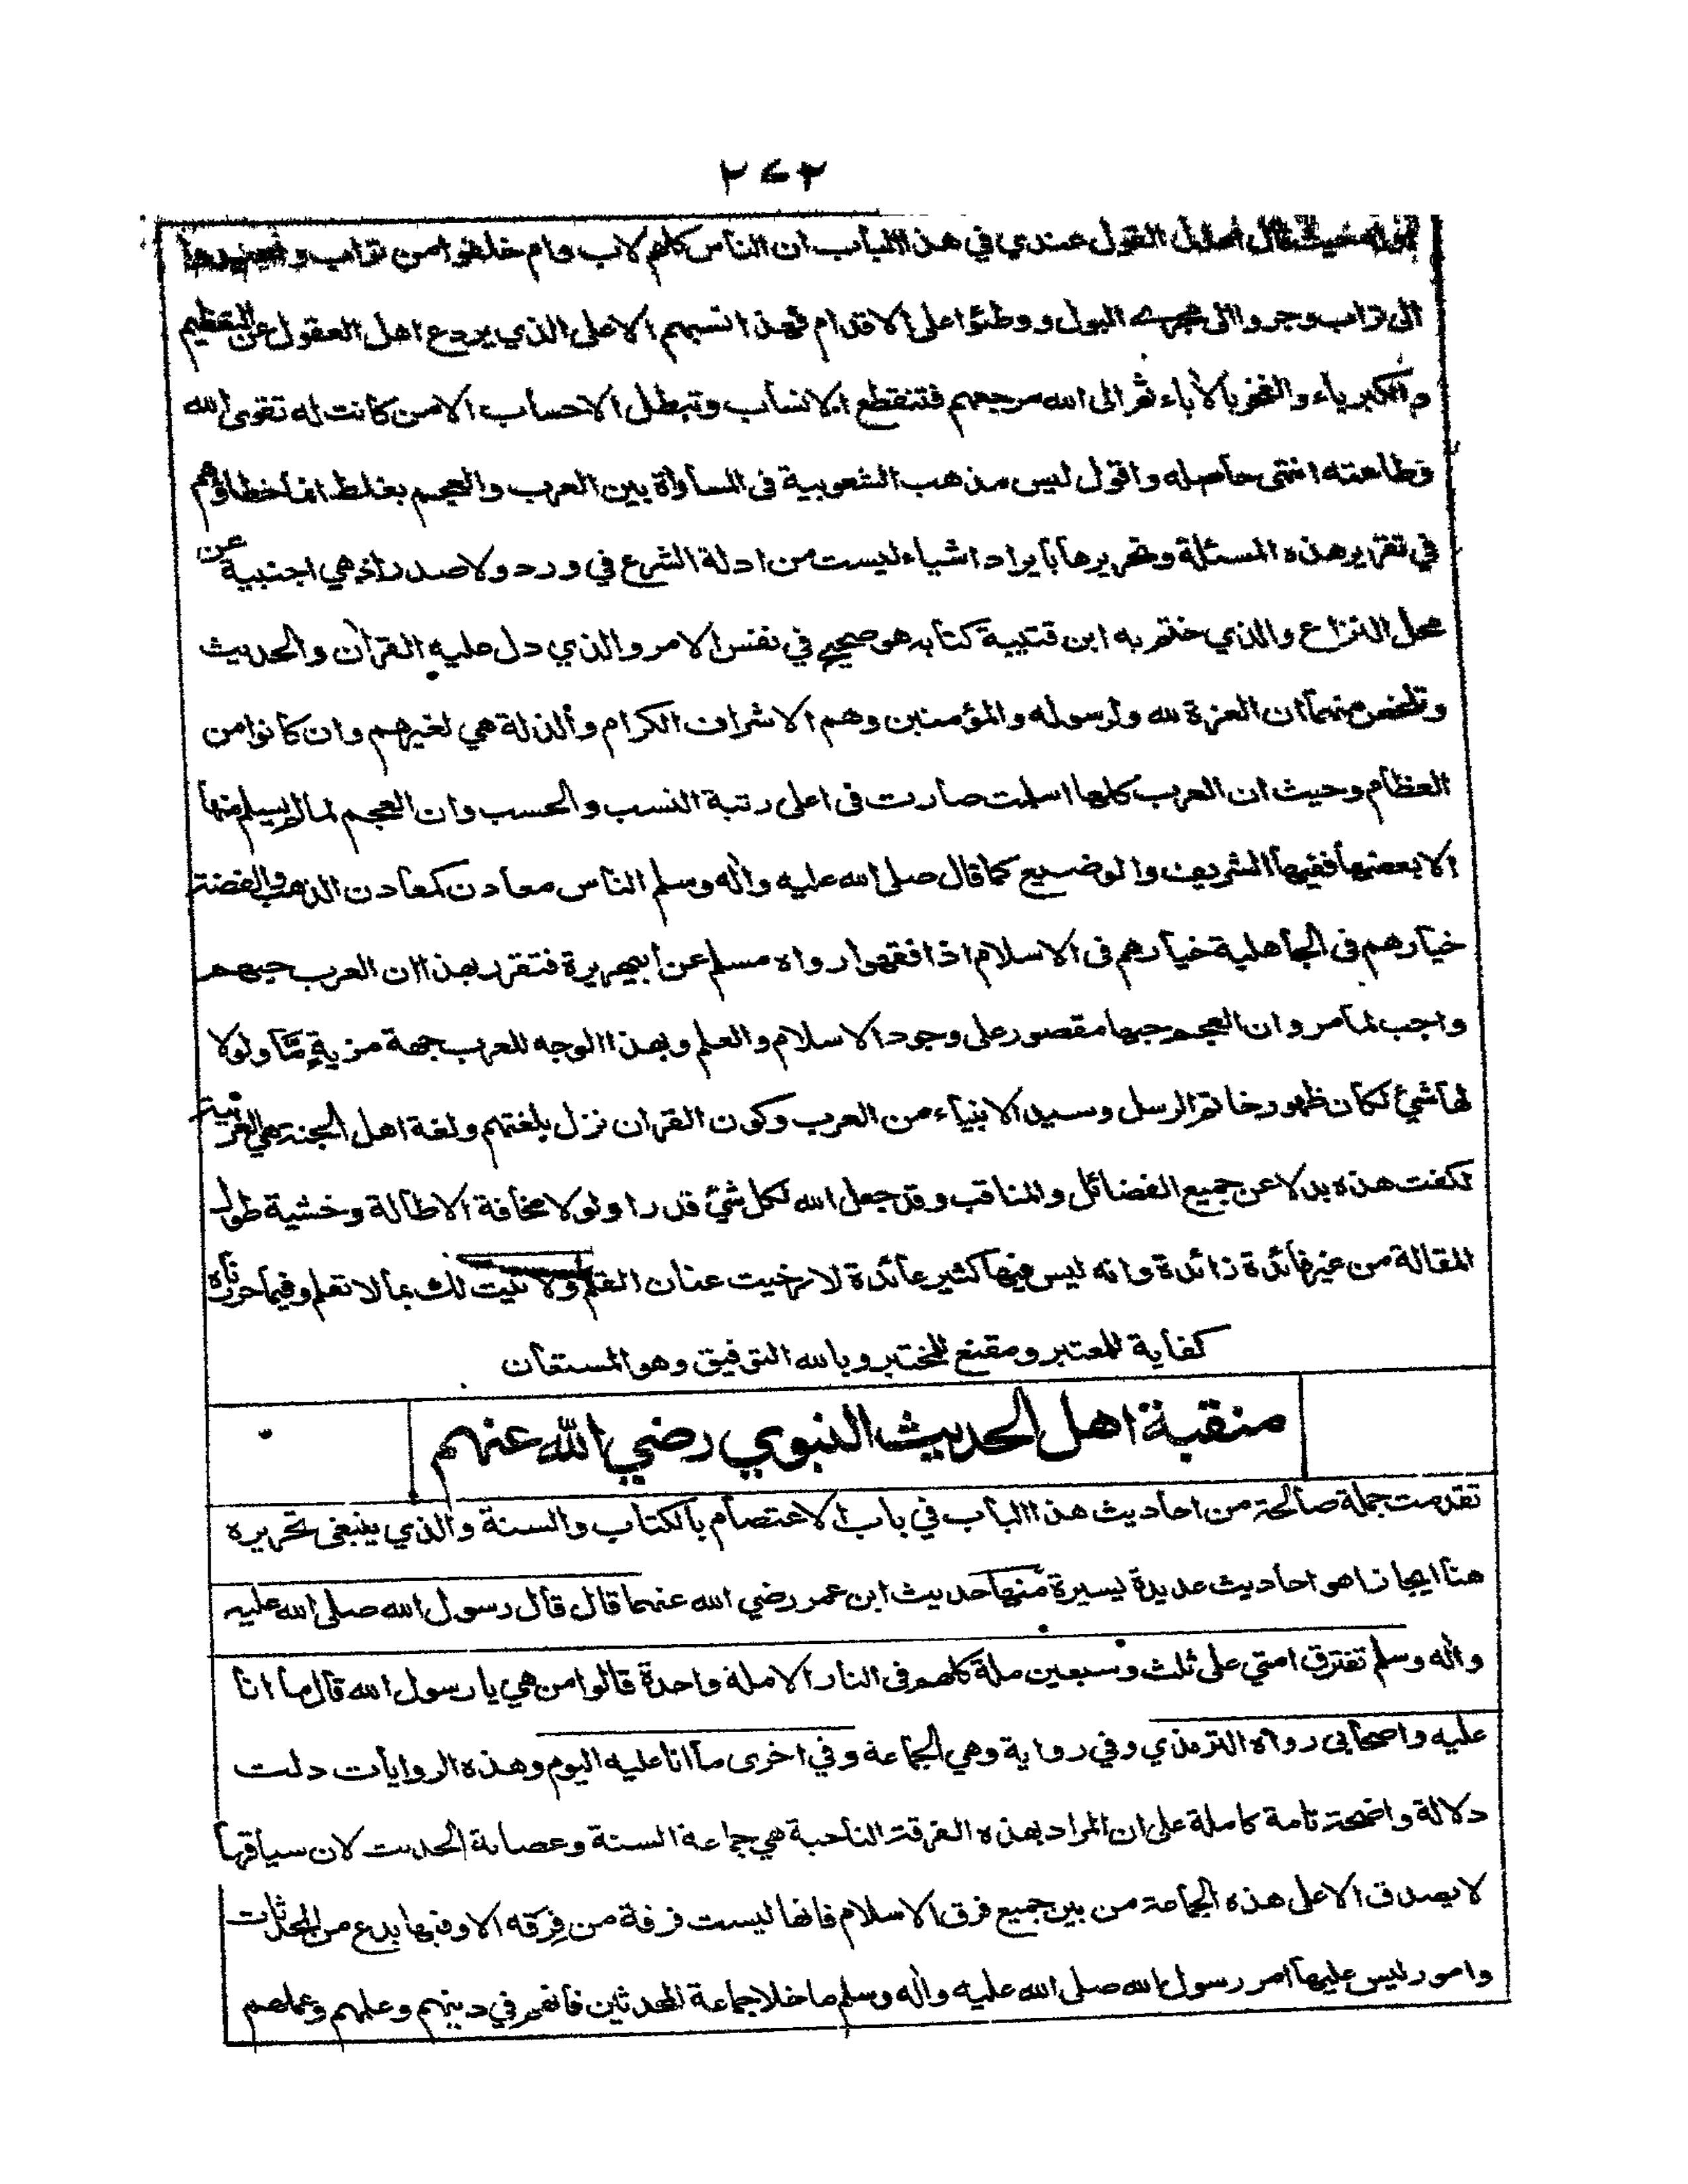 ٢٧٢
بقوله حيث قال اعدل القول عندي في هذا الباب ان الناس كلهم لاب وام خلقوا من تراب و
الى تراب وجروا الى مجرى البول ووطئوا على الاقدام فهذا نسبهم الاعلى الذي يردع اهل العقول عن التعظيم
والكبرياء والفخر بالآباء ثم الى الله مرجعهم فتنقطع الانساب وتبطل الاحساب الا من كانت له تقوى الله
وطاعته انتهى حاصله واقول ليس مذهب الشعوبية فى المساواة بين العرب والعجم بغلط انما خطاؤهم
في تقرير هذه المسئلة وتحريرها بايراد اشياء ليست من ادلة الشرع في ورد ولا صدر اذ هي اجنبية عن
محل النزاع والذي ختم به ابن قتيبة كتابه هو صحيح في نفس الامر والذي دل عليه القرآن والحديث
وتلخص منهما ان العزة لله ولرسوله والمؤمنين وهم الاشراف الكرام والذلة هي لغيرهم وان كانوا من
العظام وحيث ان العرب كلها اسلمت صارت فى اعلى رتبة النسب والحسب وان العجم لما لم يسلم منها
الا بعضها ففيها الشريف والوضيع كما قال صلى الله عليه واله وسلم الناس معادن كمعادن الذهب والفضة
خيارهم فى الجاهلية خيارهم فى الاسلام اذا فقهوا رواه مسلم عن ابيهريرة فتقرر بهذا ان العرب حبهم
واجب لما مر وان العجم حبها مقصور على وجود الاسلام والعلم وبهذا الوجه للعرب جهة مزية مّا ولولا
لها شئ لكان ظهور خاتم الرسل وسيد الانبياء من العرب وكون القران نزل بلغتهم ولغة اهل الجنة هي العربية
لكفت هذه بدلا عن جميع الفضائل والمناقب وقد جعل الله لكل شئ قدرا ولولا مخافة الاطالة وخشية طول
المقالة من غير فائدة زائدة وانه ليس فيها كثير عائدة لارخيت عنان القلم ولاتيت لك بما لا تعلم وفيما حررناه
كفاية للمعتبر ومقنع للمختبر وبالله التوفيق وهو المستعان
منقبة اهل الحديث النبوي رضي الله عنهم
تقدمت جملة صالحة من احاديث هذا الباب في باب الاعتصام بالكتاب والسنة والذي ينبغى تحريره
هنا ايجازا هو احاديث عديدة يسيرة منها حديث ابن عمر رضي الله عنهما قال قال رسول الله صلى الله عليه
واله وسلم تفترق امتي على ثلث وسبعين ملة كلهم فى النار الا ملة واحدة قالوا من هي يا رسول الله قال ما انا
عليه واصحابى رواه الترمذي وفي رواية وهي الجماعة وفي اخرى ما انا عليه اليوم وهذه الروايات دلت
دلالة واضحة تامة كاملة على ان المراد بهذه الفرقة الناجية هي جماعة السنة وعصابة الحديث لان سياقها
لا يصدق الا على هذه الجماعة من بين جميع فرق الاسلام فانها ليست فرقة من فِرَقه الا وفيها بدع من المحدثات
وامور ليس عليها امر رسول الله صلى الله عليه واله وسلم ما خلا جماعة المحدثين فانهم في دينهم وعلمهم وعملهم